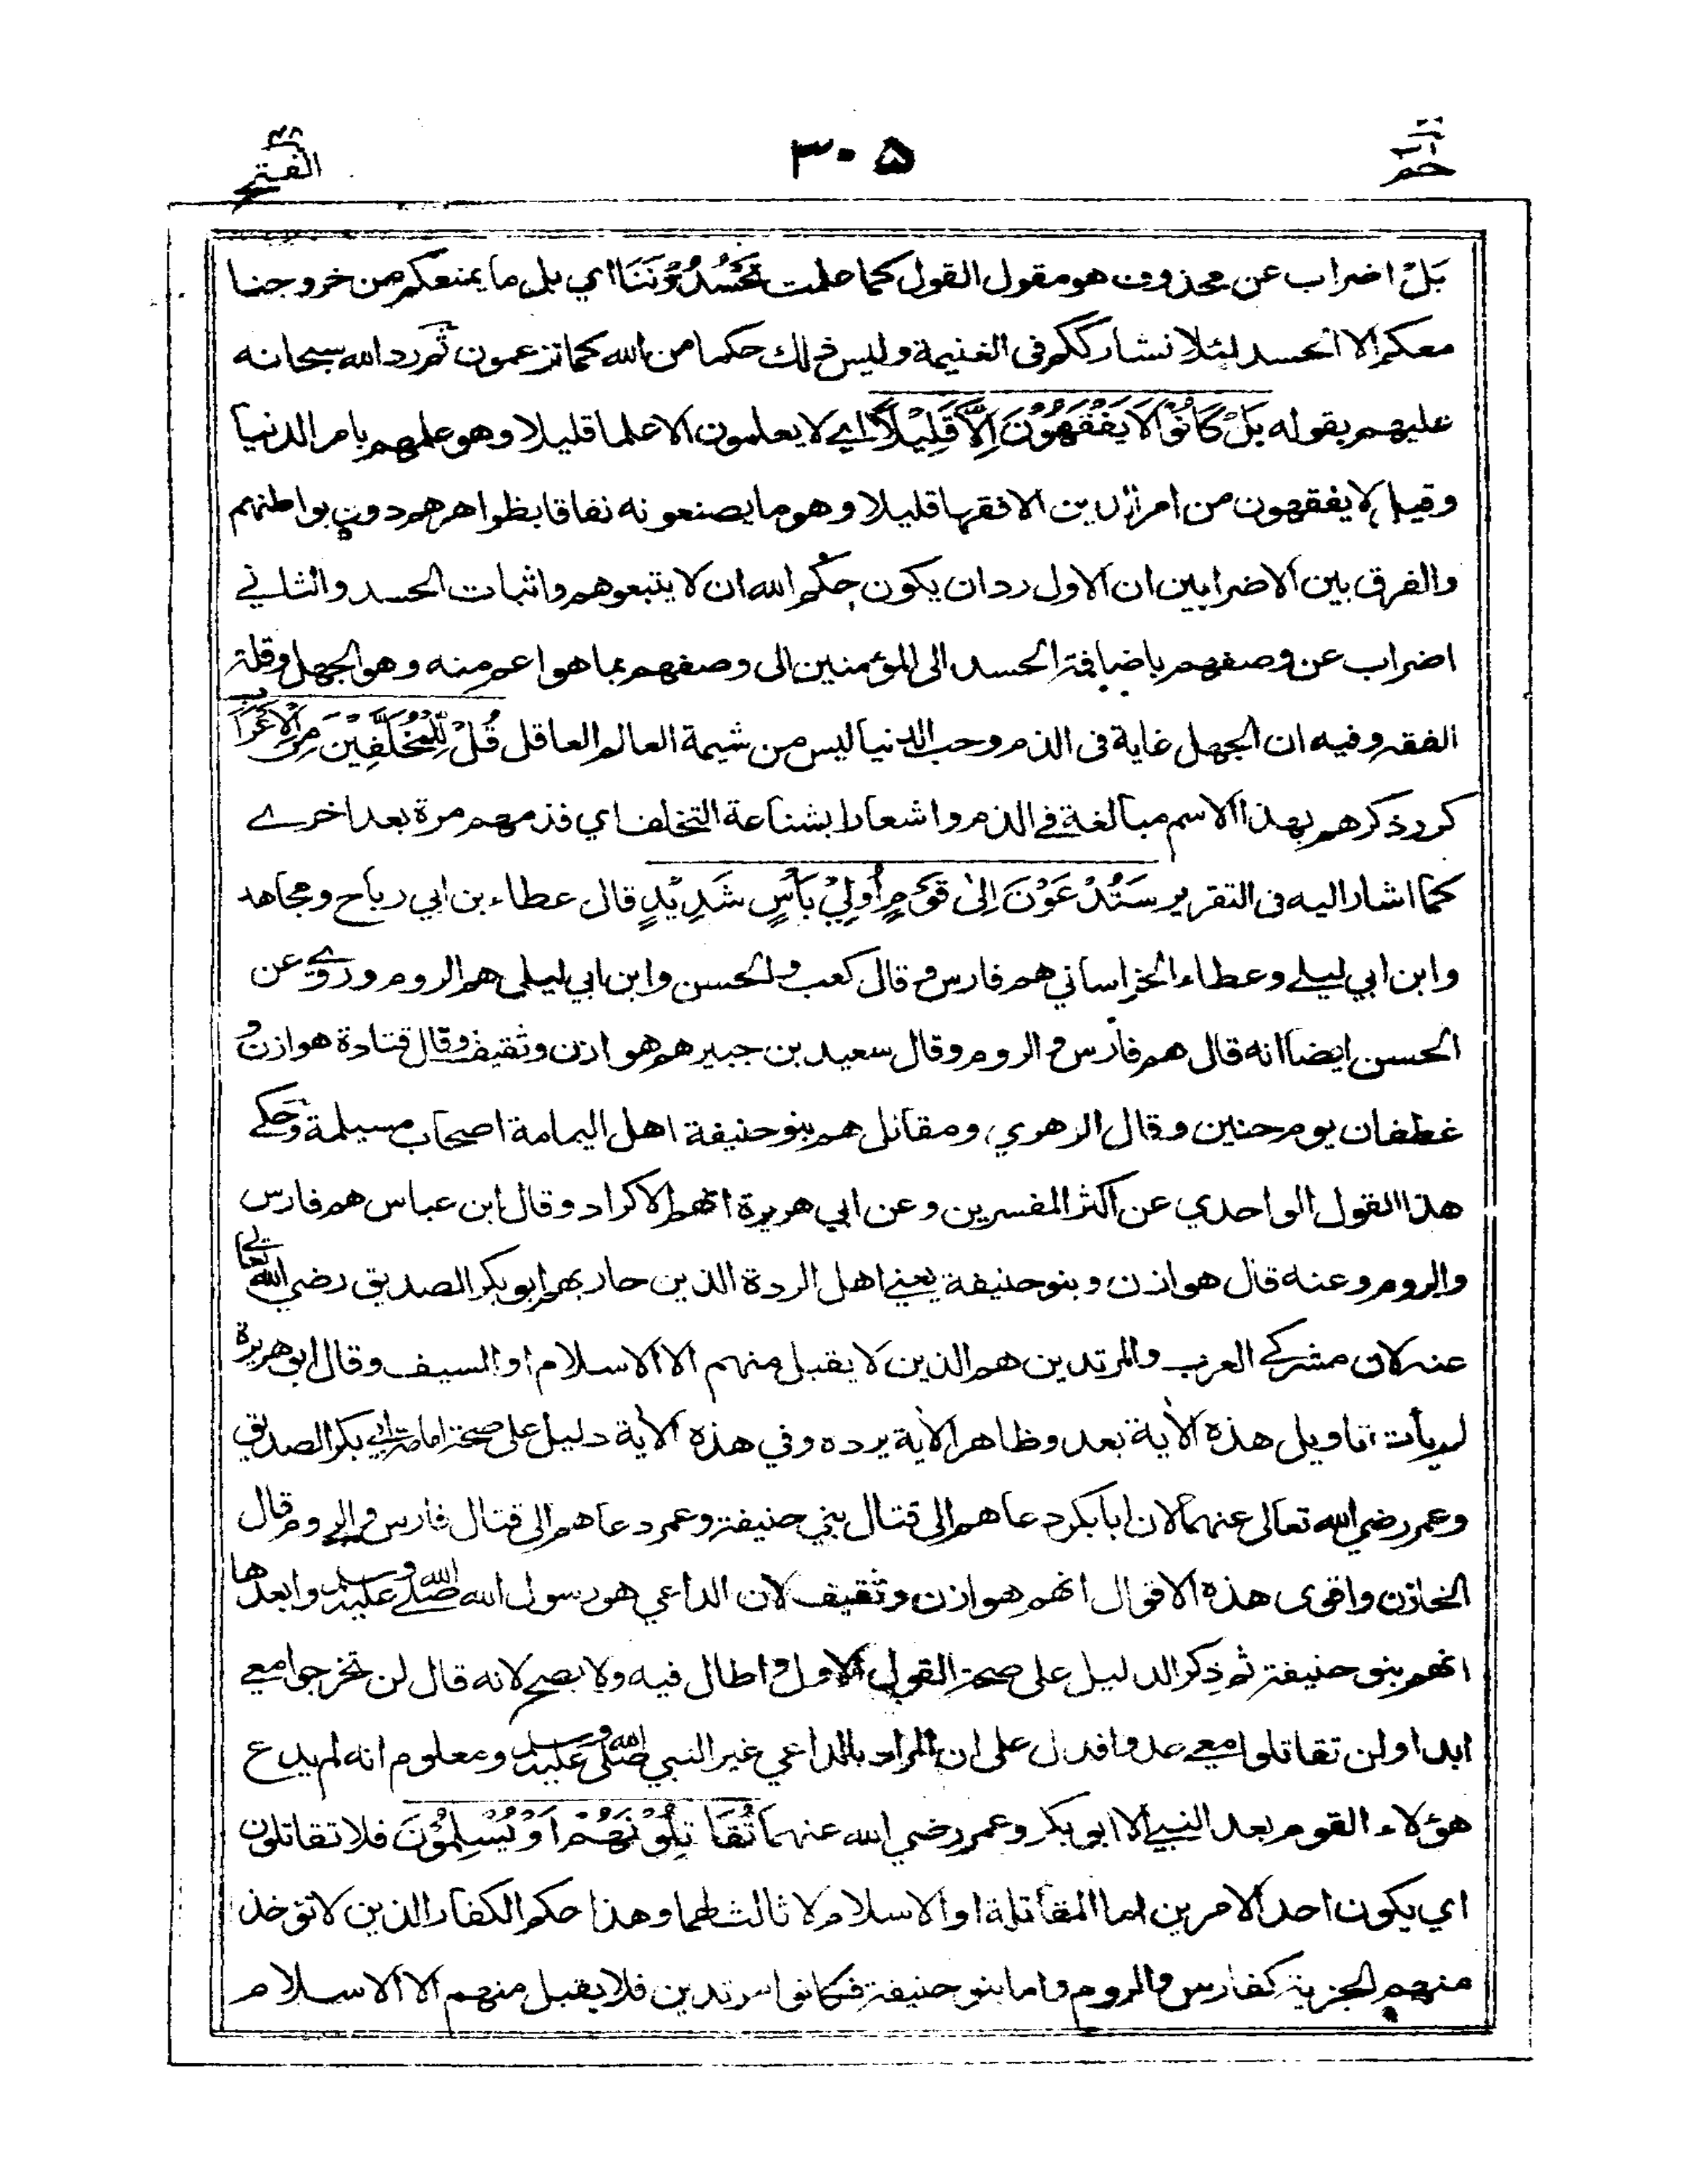 حم ٢٦
٣٠٥
الفتح ٤٨
بَلْ اضراب عن محذوف هو مقول القول كما علمت تَحْسُدُوْنَنَا اي بل ما يمنعكم من خروجنا
معكم الا الحسد لئلا نشارككم فى الغنيمة وليس ذلك حكما من الله كما تزعمون ثم رد الله سبحانه
عليهم بقوله بَلْ كَانُوْا لَا يَفْقَهُوْنَ اِلَّا قَلِيْلًا اي لا يعلمون الا علما قليلا وهو علمهم بامر الدنيا
وقيل لا يفقهون من امر الدين الا فقها قليلا وهو ما يصنعونه نفاقا بظواهرهم دون بواطنهم
والفرق بين الاضرابين ان الاول رد ان يكون حكم الله ان لا يتبعوهم واثبات الحسد والثاني
اضراب عن وصفهم باضافة الحسد الى المؤمنين الى وصفهم بما هو اعم منه وهو الجهل وقلة
الفقه وفيه ان الجهل غاية فى الذم وحب الدنيا ليس من شيمة العالم العاقل قُلْ لِّلْمُخَلَّفِيْنَ مِنَ الْاَعْرَابِ
كرر ذكرهم بهذا الاسم مبالغة في الذم واشعارا بشناعة التخلف اي فذمهم مرة بعد اخرے
كما اشار اليه فى التقرير سَتُدْعَوْنَ اِلٰى قَوْمٍ اُولِيْ بَاْسٍ شَدِيْدٍ قال عطاء بن ابي رباح ومجاهد
وابن ابي ليلے وعطاء الخراساني هم فارس وقال كعب والحسن وابن ابي ليلى هم الروم وروي عن
الحسن ايضا انه قال هم فارس والروم وقال سعيد بن جبير هم هوازن وثقيف وقال قتادة هوازن و
غطفان يوم حنين وقال الزهري ومقاتل هم بنو حنيفة اهل اليمامة اصحاب مسيلمة وحكے
هذا القول الواحدي عن اكثر المفسرين وعن ابي هريرة انهم الاكراد وقال ابن عباس هم فارس
والروم وعنه قال هوازن وبنو حنيفة يعني اهل الردة الذين حاربهم ابو بكر الصديق رضي الله تعالے
عنه لان مشركے العرب والمرتدين هم الذين لا يقبل منهم الا الاسلام او السيف وقال ابو هريرة
لم يأت تاويل هذه الأية بعد وظاهر الأية يرده وفي هذه الأية دليل على صحة امامة ابي بكر الصديق
وعمر رضي الله تعالى عنهما لان ابا بكر دعاهم الى قتال بني حنيفة وعمر دعاهم الى قتال فارس والروم قال
الخازن واقوى هذه الاقوال انهم هوازن وثقيف لان الداعي هو رسول الله صلى الله عليه وسلم وابعدها
انهم بنو حنيفة ثم ذكر الدليل على صحة القول الاول واطال فيه ولا يصح لانه قال لن تخرجوا معي
ابدا ولن تقاتلوا معي عدوا فدل على ان المراد بالداعي غير النبي صلى الله عليه وسلم ومعلوم انه لم يدع
هؤلاء القوم بعد النبي الا ابو بكر وعمر رضي الله عنهما تُقَاتِلُوْنَهُمْ اَوْ يُسْلِمُوْنَ فلا تقاتلون
اي يكون احد الامرين اما المقاتلة او الاسلام لا ثالث لهما وهذا حكم الكفار الذين لا تؤخذ
منهم الجزية كفارس والروم واما بنو حنيفة فكانوا مرتدين فلا يقبل منهم الا الاسلام